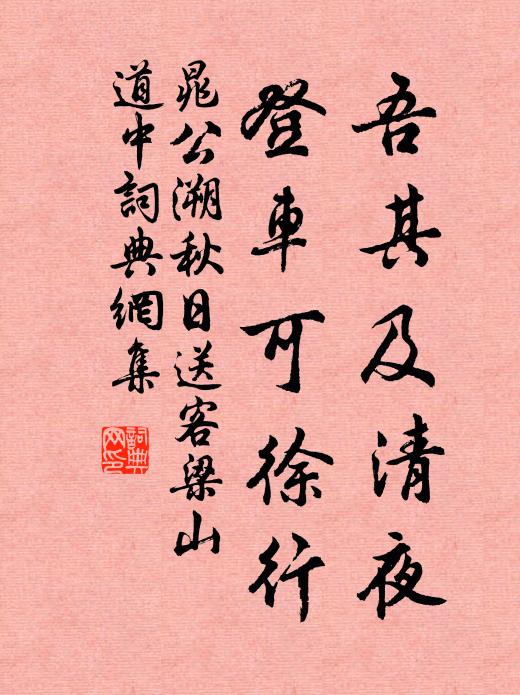 吾其及清夜
登車可徐行
晁公溯秋日送客梁山
道中詞典網集
詞典網印